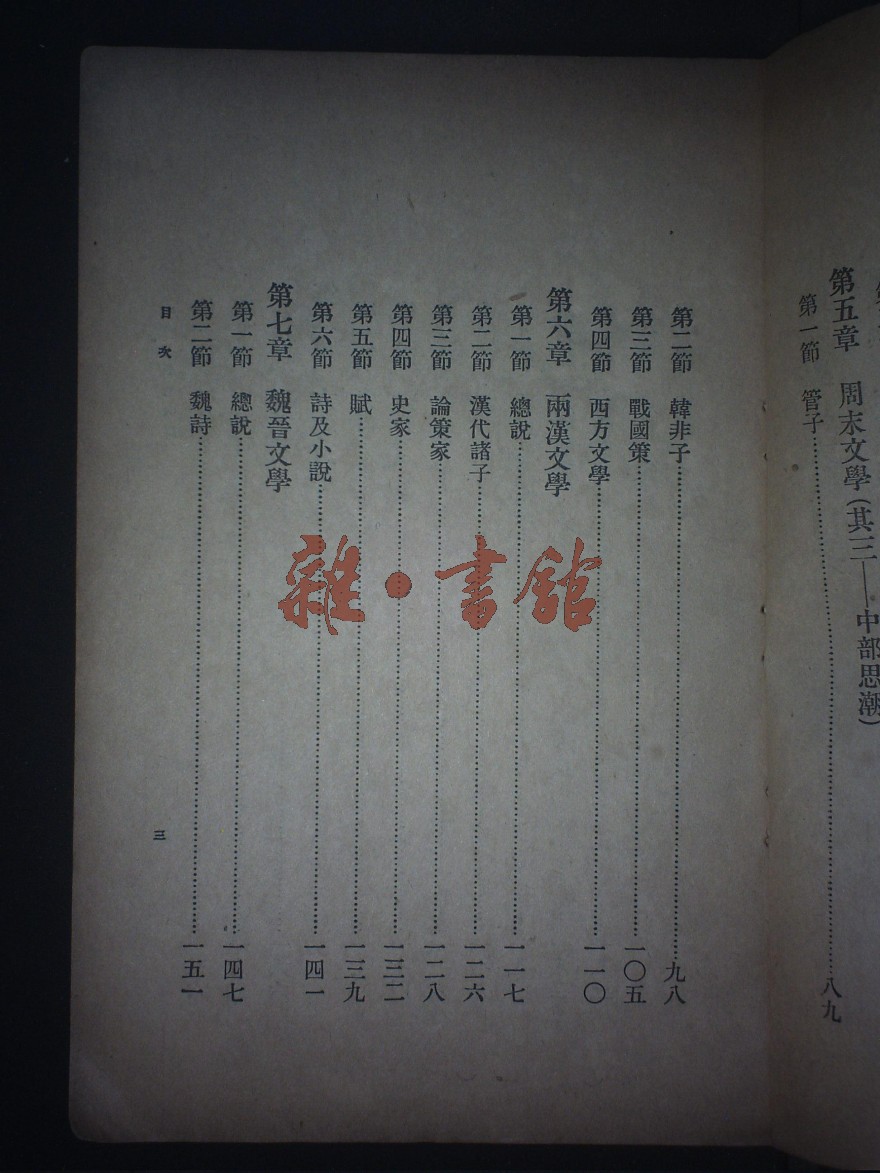 第五章　周末文學(其三——中部思潮)
第一節　管子……八九
第二節　韓非子……九八
第三節　戰國策……一〇五
第四節　西方文學……一一〇
第六章　兩漢文學
第一節　總說……一一七
第二節　漢代諸子……一二六
第三節　論策家……一二八
第四節　史家……一三二
第五節　賦……一三九
第六節　詩及小說……一四一
第七章　魏晉文學
第一節　總說……一四七
第二節　魏詩……一五一
目次　三
雜·書館